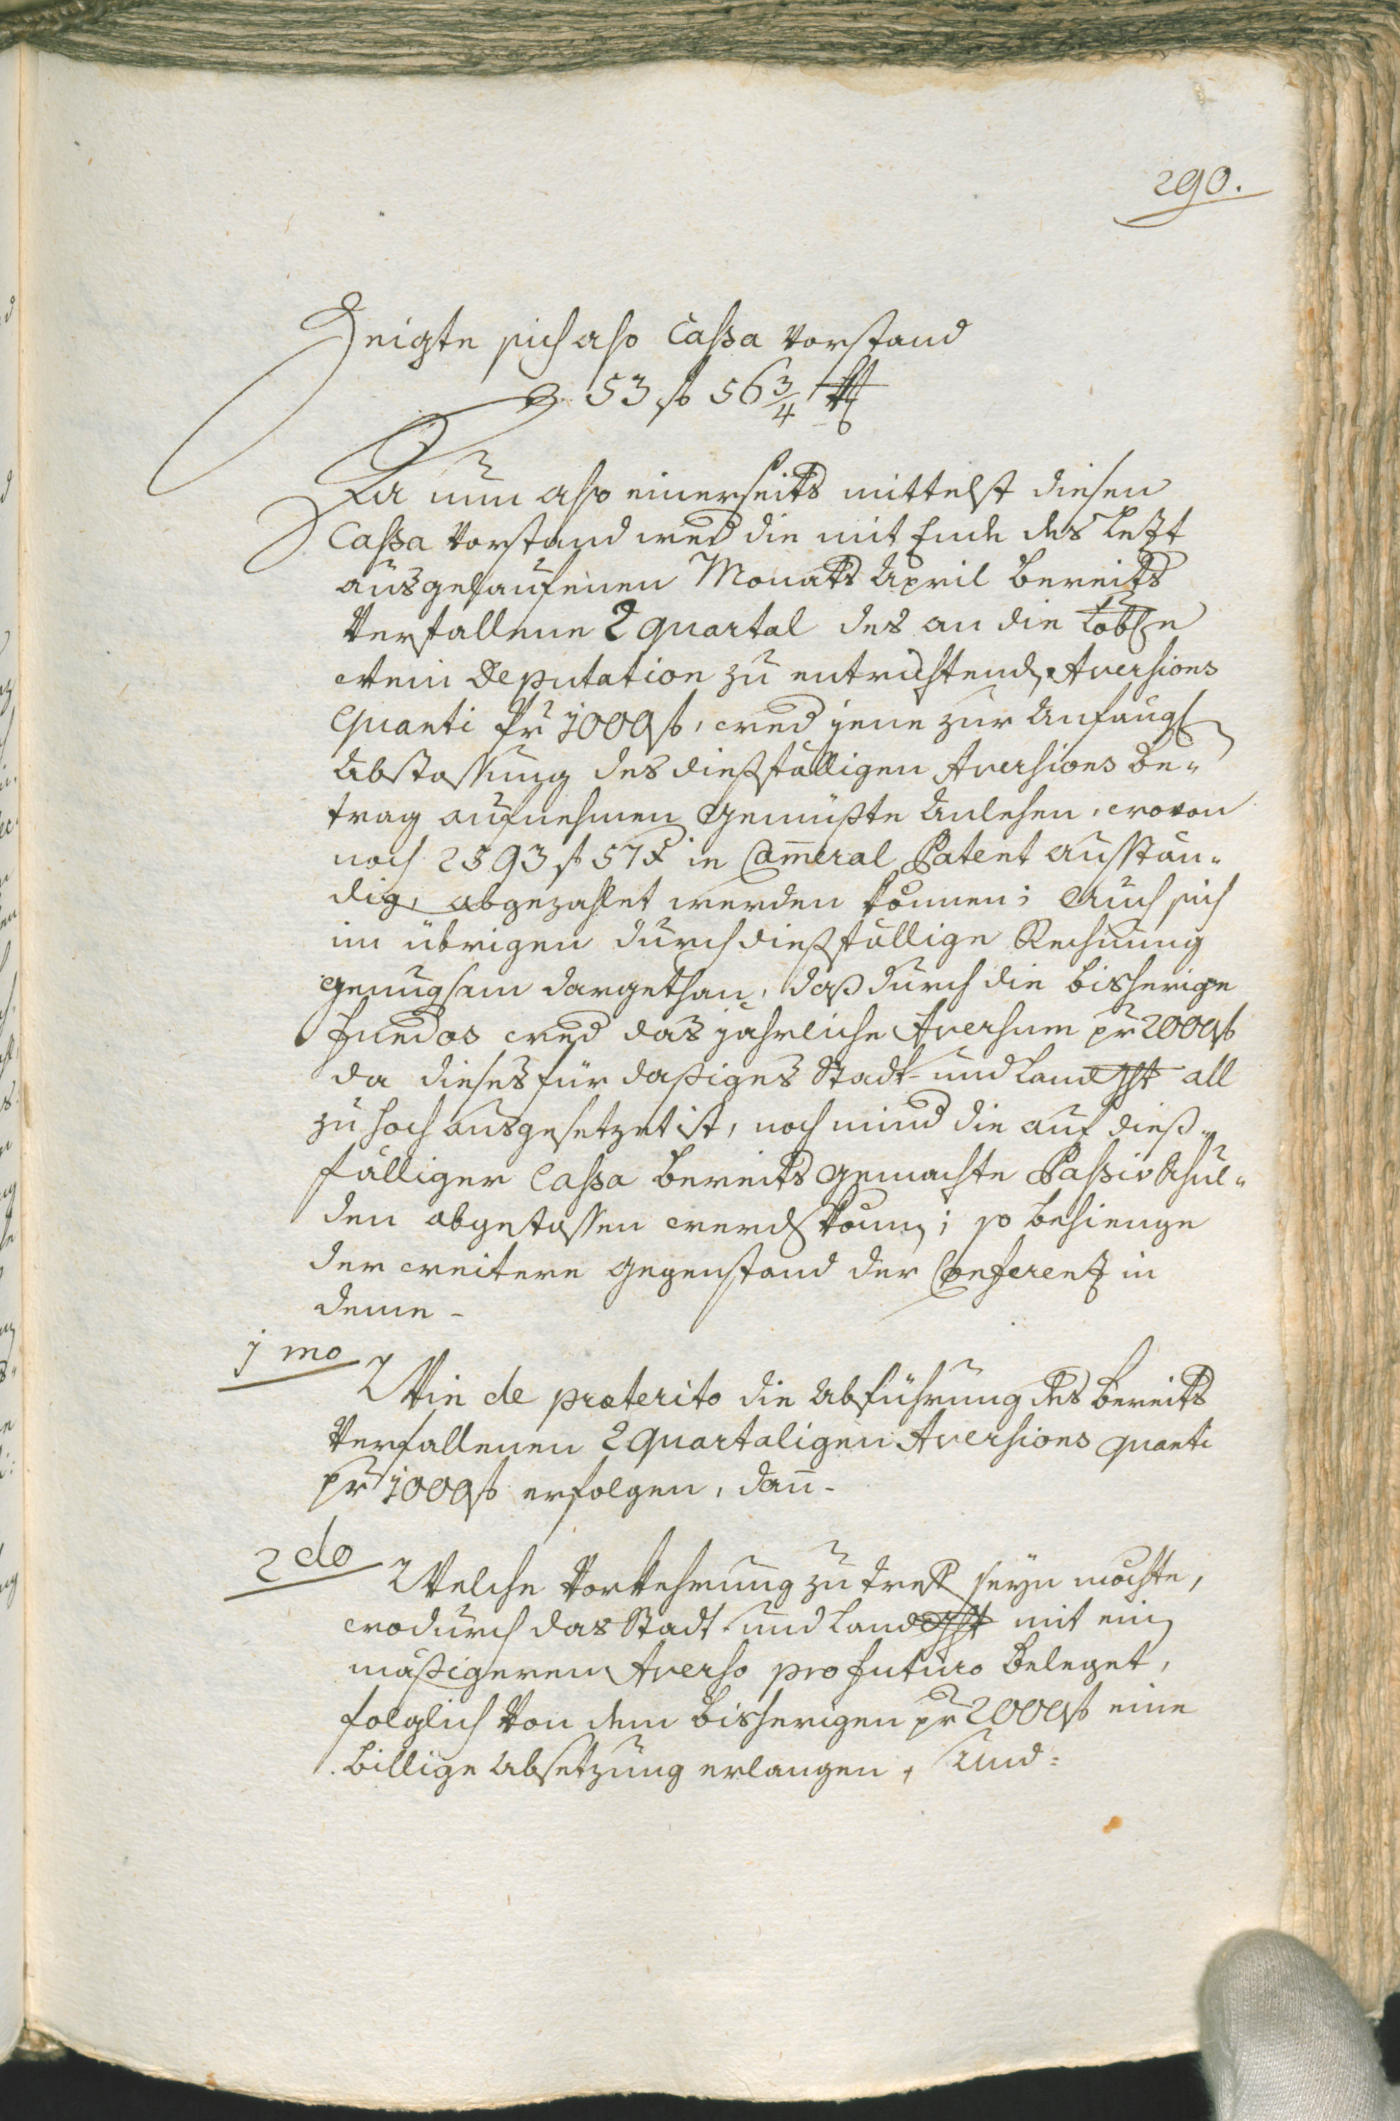 290.
Zeigte sich also Cassa Vorstand
53 f 56 3/4 xr
Da nun also einerseits mittelst diesen
Cassa Vorstand weed die mit Ende des lezt
ausgelaufenen Monats April bereits
Verfallene 2 quartal des an die Löbl:e
Wein Deputation zu entrichtend Aversions
quanti pr 1000 f, weed jene zur Anfangs
Abstossung des dießfälligen Aversions Be-
trag aufnehmen gemüßte Anlehen, wovon
noch 2593 f 57 x in Cam̄eral Patent ausstän-
dig, abgezahlet werden können; Auch sich
im übrigen durch dießfällige Rechnung
genugsam dargethan, daß durch die bisherige
Fundos weed das jährliche Aversum pr 2000 f
da dieses für dasiges Stadt- und Landgst all
zu hoch ausgesetzet ist, noch mind die auf dieß-
fälliger Cassa bereits gemachte Passiv Schul-
den abgestossen werd könn; so bestienge
der weitere Gegenstand der Conferenz in
deme -
1mo
Wie de præterito die Abführung des bereits
Verfallenen 2 quartaligen Aversions quanti
pr 1000 f erfolgen, dan̄ -
2do
Welche Vorkehrung zu treff seyn möchte,
wodurch das Stadt- und Landgst mit ein
mäßigerem Averso pro futuro beleget,
folglich von dem bisherigen pr 2000 f eine
billige Absetzung erlangen, Und: